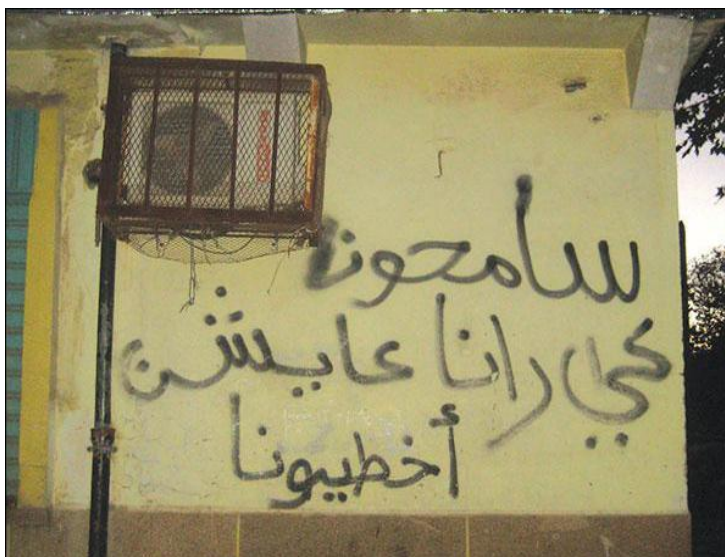 سامحونا
كي رانا عايشن
أخطيونا